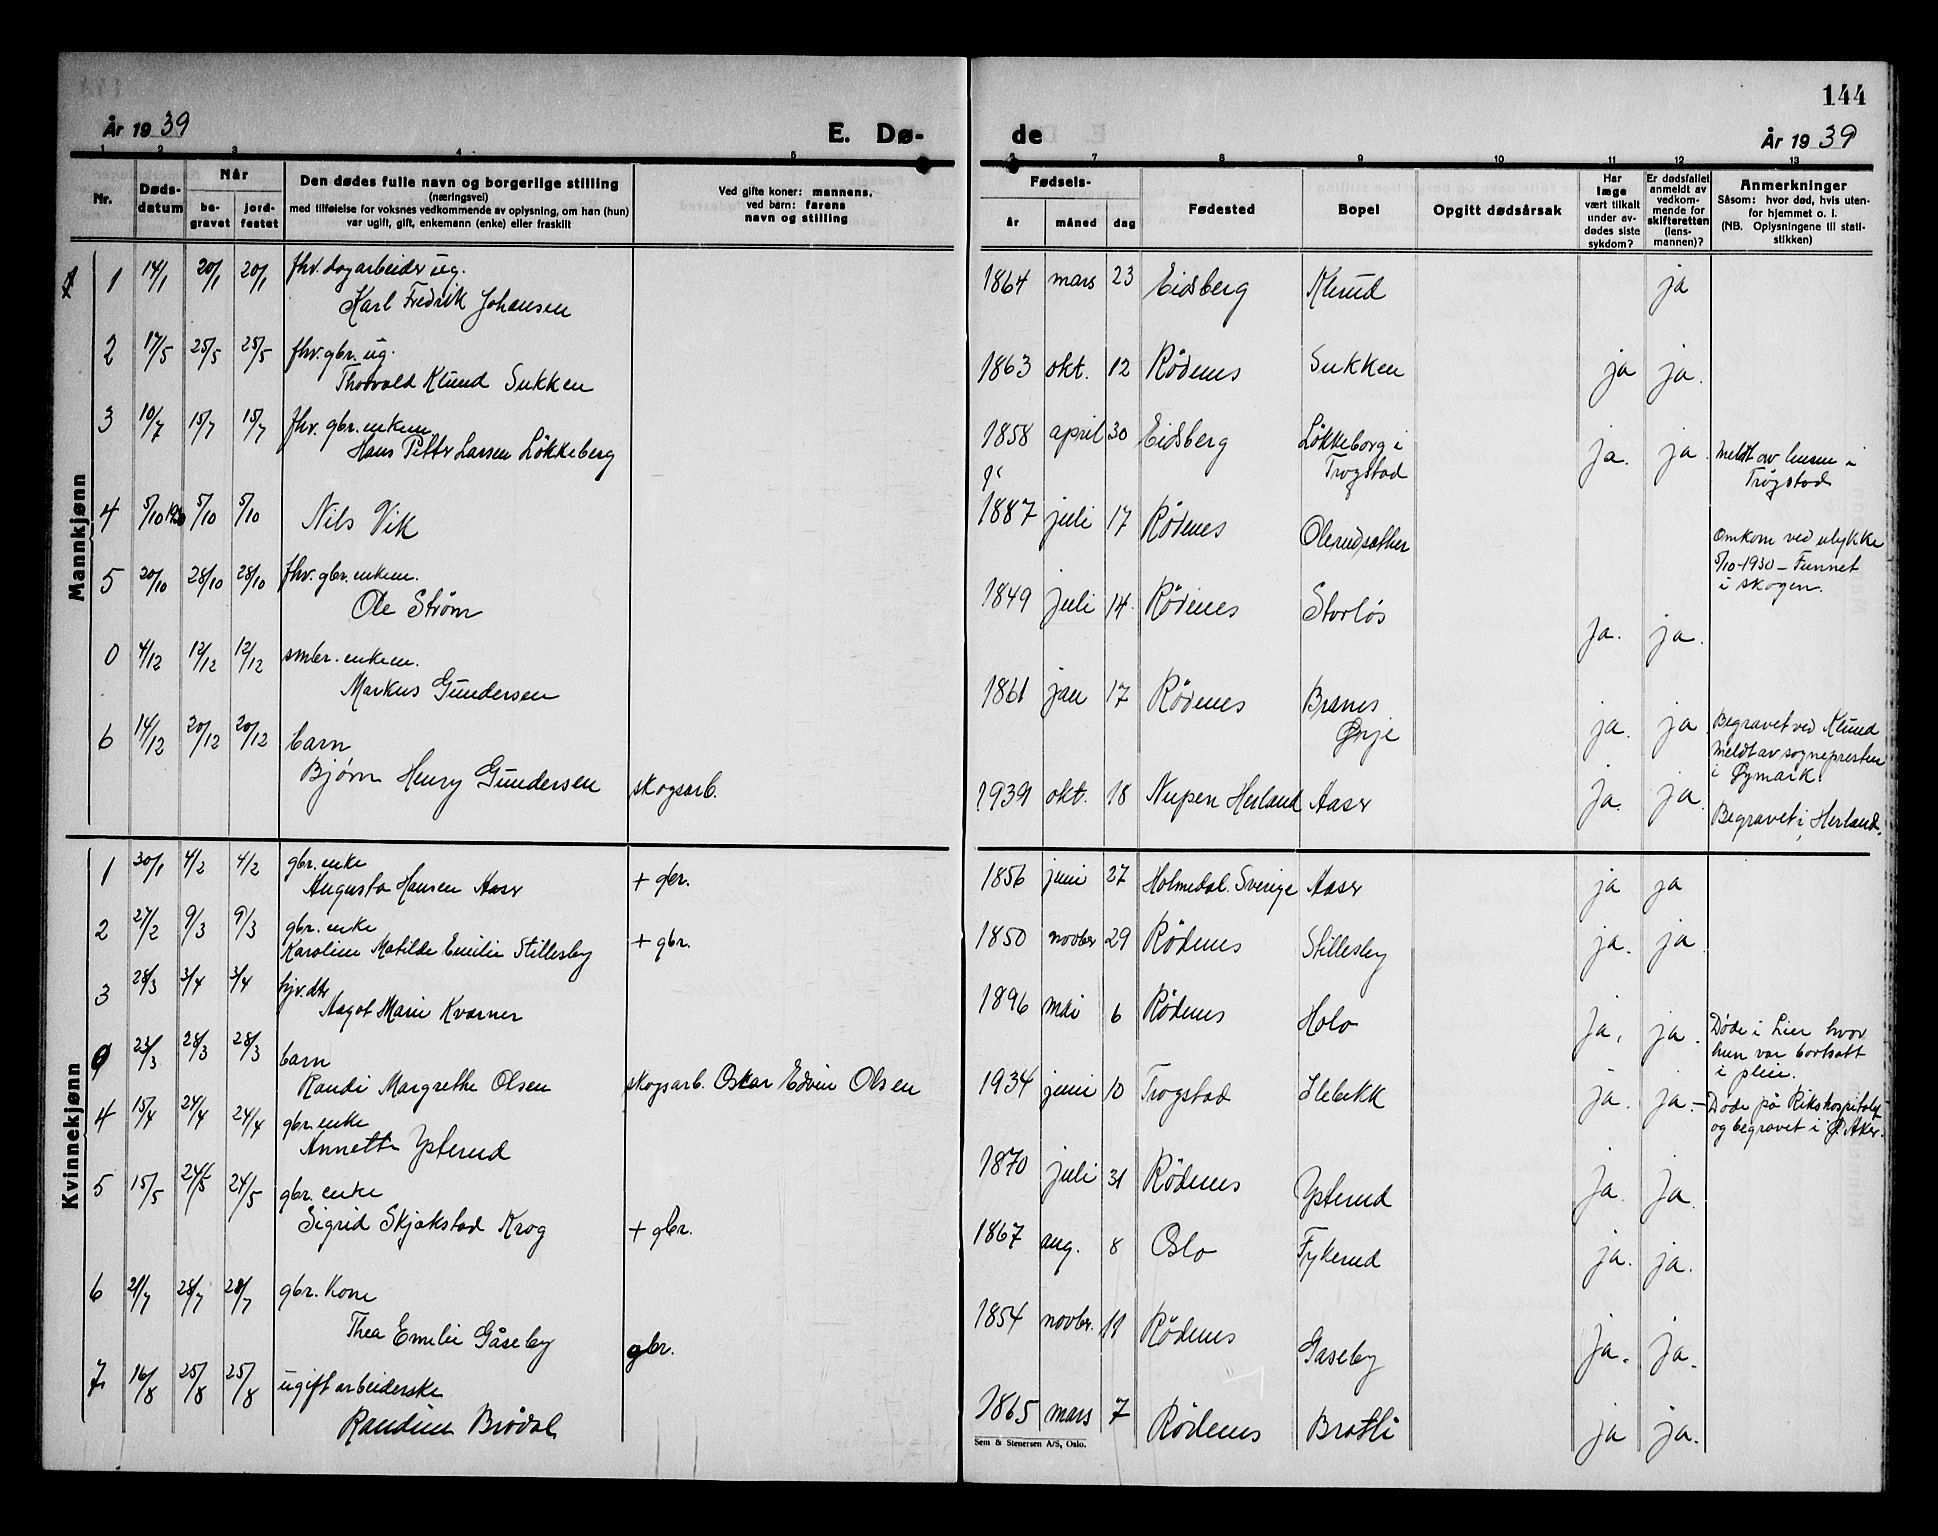 144
År 1939
E. Dø-
de
År 1939
1 2 3 4 5 6 7 8 9 10 11 12 13
Nr.
Døds-
datum
Når
be-
gravet
jord-
festet
Den dødes fulle navn og borgerlige stilling
(næringsvei)
med tilføielse for voksnes vedkommende av oplysning, om han (hun)
var ugift, gift, enkemann (enke) eller fraskilt
Ved gifte koner: mannens,
ved barn: farens
navn og stilling
Fødsels-
år
måned
dag
Fødested
Bopel
Opgitt dødsårsak
Har
læge
vært tilkalt
under av-
dødes siste
sykdom?
Er dødsfallet
anmeldt av
vedkom-
mende for
skifteretten
(lens-
mannen)?
Anmerkninger
Såsom: hvor død, hvis uten-
for hjemmet o. l.
(NB. Oplysningene til stati-
stikken)
Mannkjønn
1 14/1 20/1 20/1 fhv. dagarbeider ug.
Karl Fredrik Johansen
1864 mars 23 Eidsberg Klund ja
2 17/5 25/5 25/5 fhv. gbr. ug.
Thorvald Klund Sukken
1863 okt. 12 Rødenes Sukken ja ja.
3 10/7 15/7 15/7 fhv. gbr. enkem
Hans Petter Larsen Løkkeberg
1858 april 30 Eidsberg Løkkeborg i
Trøgstad
ja. ja
meldt av lensm i
Trøgstad
4 5/10 1930 5/10 5/10 Nils Vik
1887 juli 17 Rødenes Olerudsæther
Omkom ved ulykke
5/10-1930 - Funnet
i skogen.
5 20/10 28/10 28/10 fhv. gbr. enkem.
Ole Strøm
1849 juli 14. Rødenes Storløs
ja. ja.
0 4/12 12/12 12/12 smbr. enkem.
Markus Gundersen
1861 jan 17 Rødenes Branes
Ørje
ja. ja
Begravet ved Klund
meldt av sognepresten
i Øymark.
6 14/12 20/12 20/12 barn
Bjørn Henry Gundersen skogsarb.
1939 okt. 18 Nupen Herland Aaser
ja. ja.
Begravet i Herland.
Kvinnekjønn
1 30/1 4/2 4/2 gbr. enke
Augusta Hansen Aaser + gbr.
1856 juni 27 Holmedal. Sverige Aaser ja ja
2 27/2 9/3 9/3 gbr. enke
Karoline Matilde Emilie Stillesby + gbr.
1850 novber 29 Rødenes Stillesby ja. ja
3 28/3 3/4 3/4 hjv. dtr
Aagot Marie Kværner
1896 mai 6 Rødenes Holo
ja. ja.
Døde i Lier hvor
hun var bortsatt
i pleie.
0 23/3 28/3 28/3 barn
Randi Margrethe Olsen skogsarb. Oskar Edvin Olsen
1934 juni 10 Trøgstad Ilebekk
ja. ja.
Døde på Rikshospitalet
og begravet i Ø. Aker.
4 15/4 24/4 24/4 gbr. enke
Annette Ysterud
1870 juli 31 Rødenes Ysterud
ja. ja.
5 15/5 24/5 24/5 gbr. enke
Sigrid Skjakstad Krog + gbr.
1867 aug. 8 Oslo Fykerud
ja. ja.
6 21/7 28/7 28/7 gbr. kone
Thea Emilie Gåseby gbr.
1854 novbr. 11 Rødenes Gaseby
ja. ja.
7 16/8 25/8 25/8 ugift arbeiderske
Randine Brødal
1865 mars 7 Rødenes Bratli
ja ja.
Sem & Stenersen A/S, Oslo.